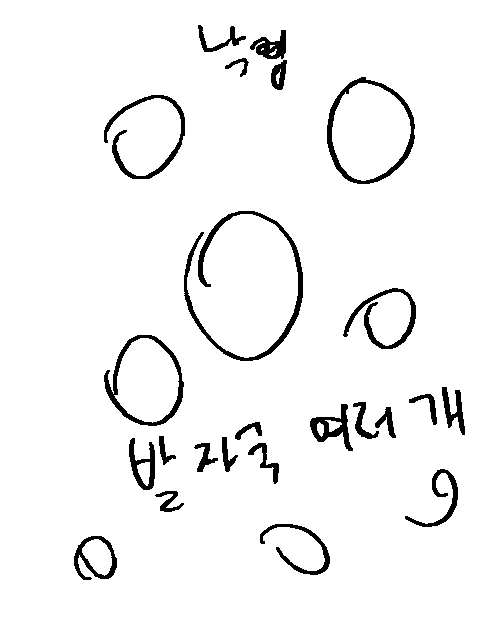 낙형
발자국 여러 개